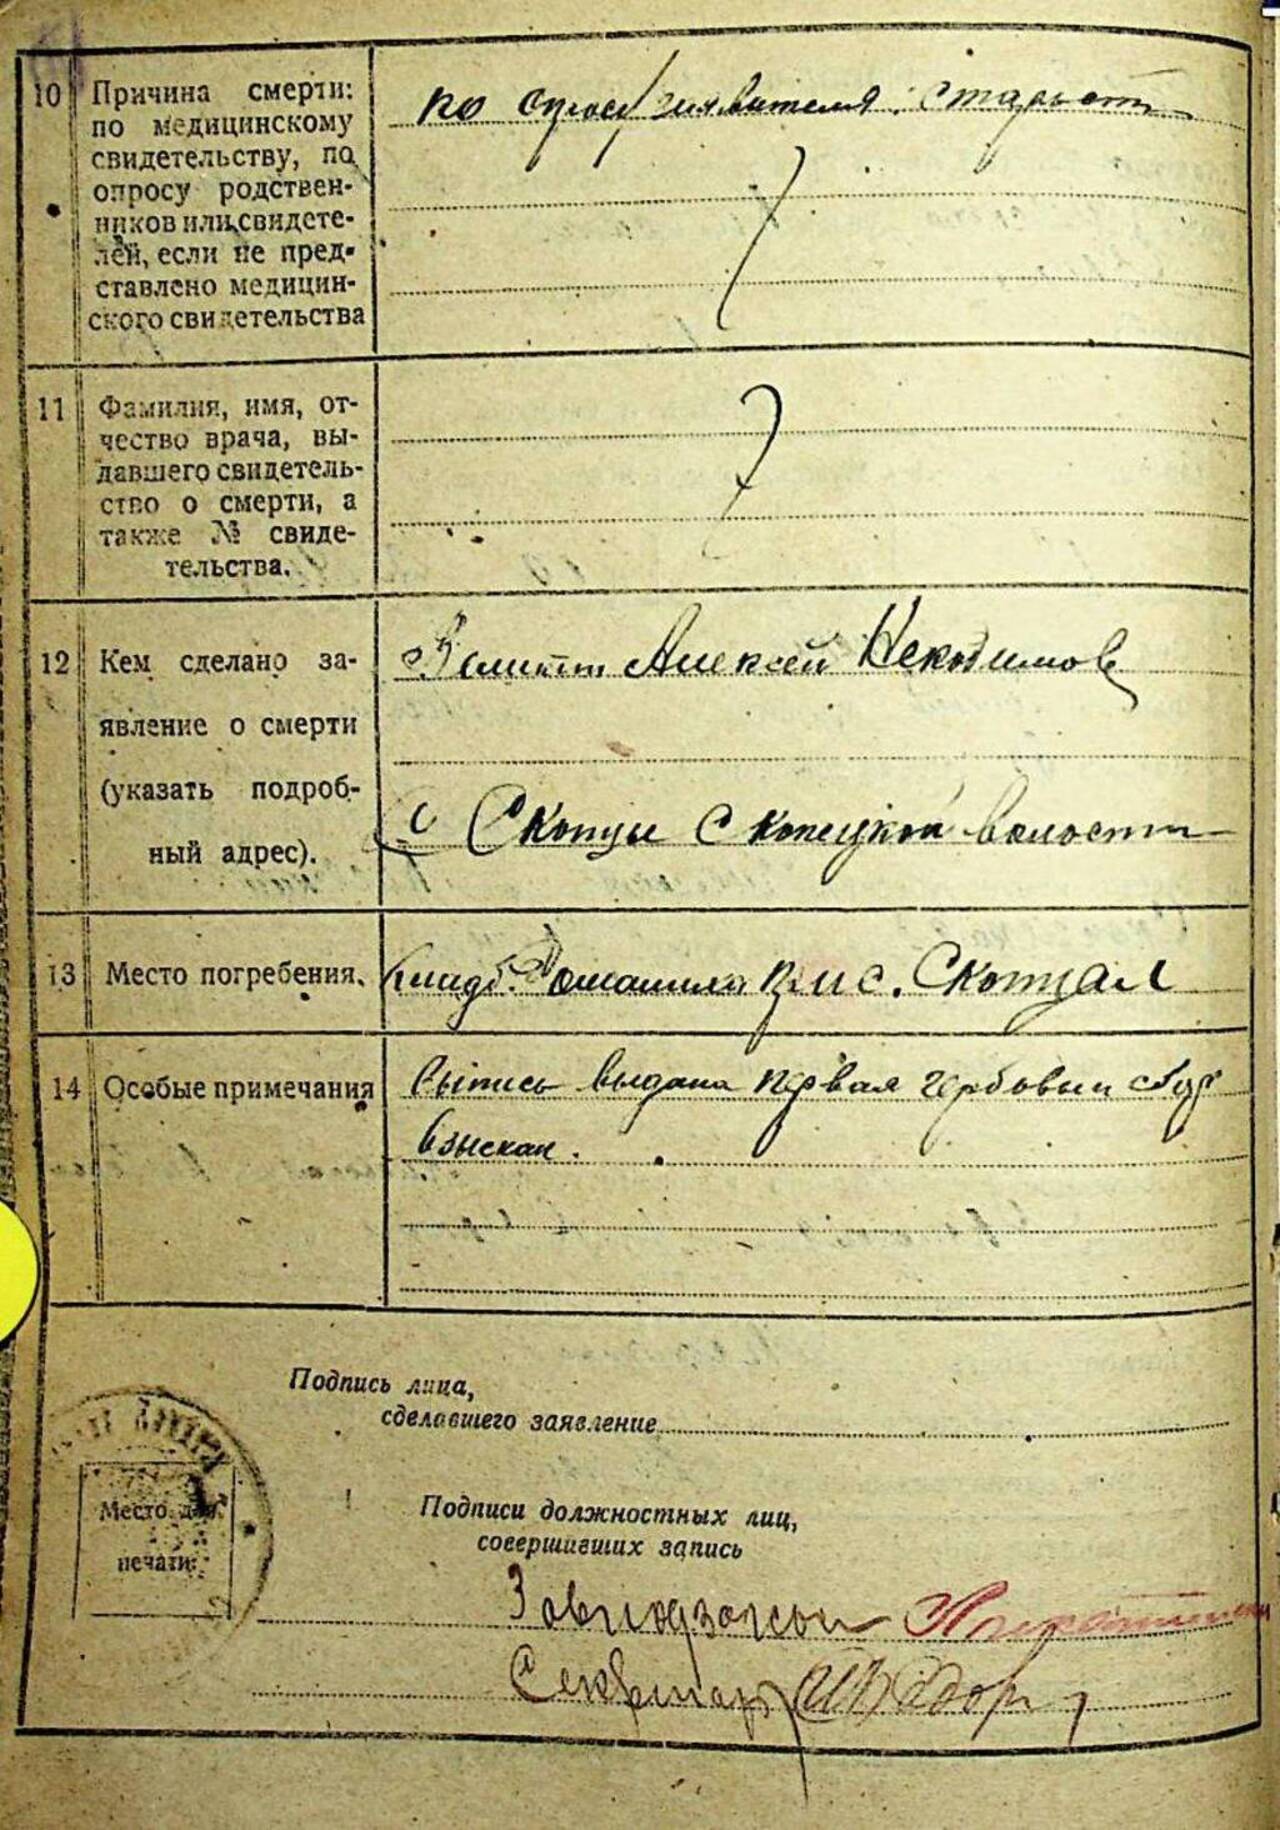 10 Причина смерти:
по медицинскому
свидетельству, по
опросу родствен-
ников или свидете-
лей, если не пред-
ставлено медицин-
ского свидетельства
по опросу заявителя: старости
11 Фамилия, имя, от-
чество врача, вы-
давшего свидетель-
ство о смерти, а
также № свиде-
тельства.
12 Кем сделано за-
явление о смерти
(указать подроб-
ный адрес).
Алексей Некодимов
с Скотцы Скотецкой волости
13 Место погребения.
кладб. при с. Скотцах
14 Особые примечания
выпись выдана первая гербовый сбор
взыскан.
Подпись лица,
сделавшего заявление
Место для
печати.
Подписи должностных лиц,
совершивших запись
Завподзагсом
Секретарь